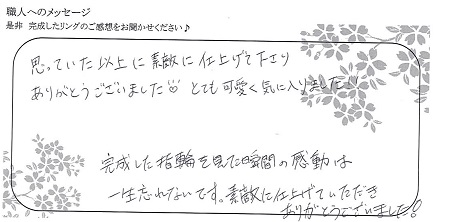 職人へのメッセージ
是非 完成したリングのご感想をお聞かせください♪
思っていた以上に素敵に仕上げて下さり
ありがとうございました♡ とても可愛く気に入りました!!
完成した指輪を見た瞬間の感動は
一生忘れないです。素敵に仕上げていただき
ありがとうございました!!